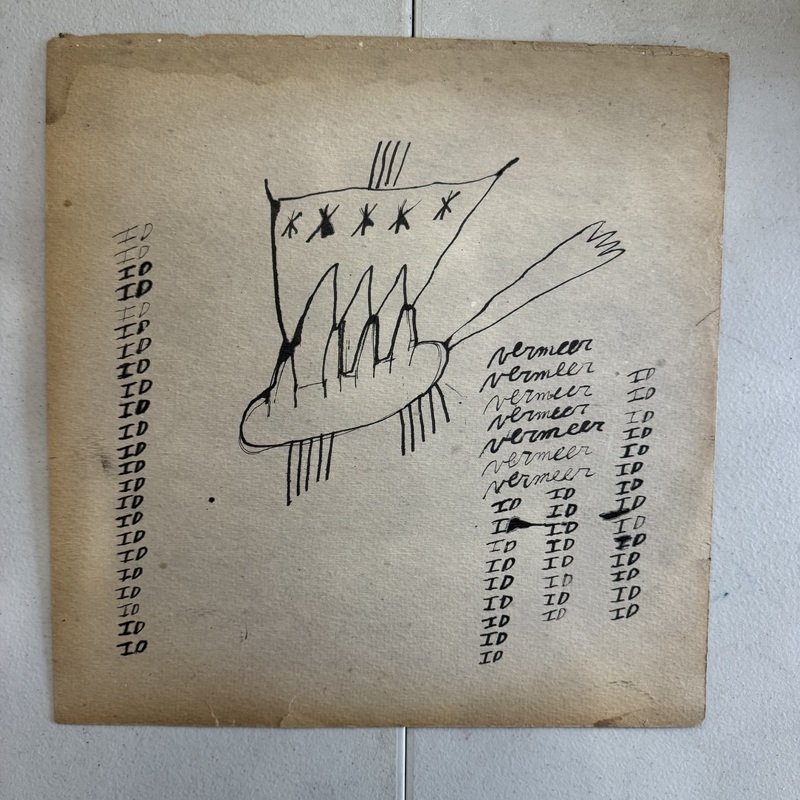 ID
ID
ID
ID
ID
ID
ID
ID
ID
ID
ID
ID
ID
ID
ID
ID
ID
ID
ID
ID
ID
ID
ID
vermeer
vermeer
vermeer
vermeer
vermeer
vermeer
vermeer
ID
ID
ID
ID
ID
ID
ID
ID
ID
ID
ID
ID
ID
ID
ID
ID
ID
ID
ID
ID
ID
ID
ID
ID
ID
ID
ID
ID
ID
ID
ID